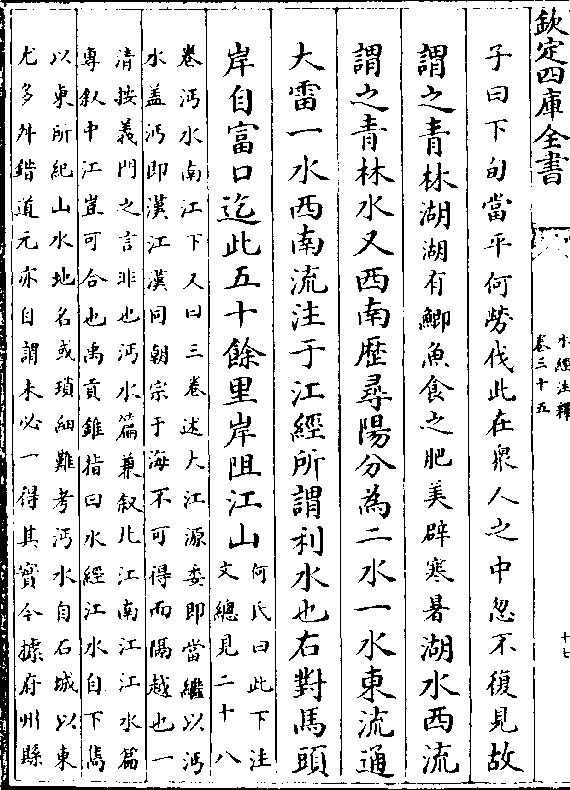 欽定四庫全書
水經注釋
卷三十五
十七
子曰下旬當平何勞伐此在衆人之中忽不復見故
謂之青林湖湖有鯽魚食之肥美辟寒暑湖水西流
謂之青林水又西南歷尋陽分為二水一水東流通
大雷一水西南流注于江經所謂利水也右對馬頭
岸自富口迄此五十餘里岸阻江山
何氏曰此下注
文總見二十八
卷沔水南江下又曰三卷述大江源委即當繼以沔
水盖沔即漢江漢同朝宗于海不可得而隔越也一
清按義門之言非也沔水篇兼叙北江南江江水篇
專叙中江豈可合也禹貢錐指曰水經江水自下雋
以東所紀山水地名或瑣細難考沔水自石城以東
尤多舛錯道元亦自謂未必一得其實今據府州縣